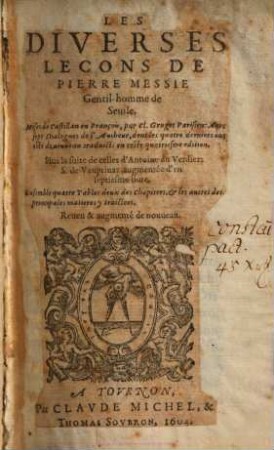 LES
DIVERSES
LECONS DE
PIERRE MESSIE
Gentil-homme de
Seuile.
Mises de Castillan en François, par Cl. Gruget Parisien: Auec
sept Dialogues de l'Autheur, dont les quatre derniers ont
esté de nouueau traduicts en ceste quatriesme edition.
Plus la suite de celles d'Antoine du Verdier,
S. de Vauprinaz augmentée d'vn
septiesme liure.
Ensemble quatre Tables deux des Chapitres, & les autres des
principales matieres y traictees.
Reueu & augmenté de nouueau.
Constat
pact.
45
A TOVRNON,
Par CLAVDE MICHEL, &
THOMAS SOVBRON, 1604.